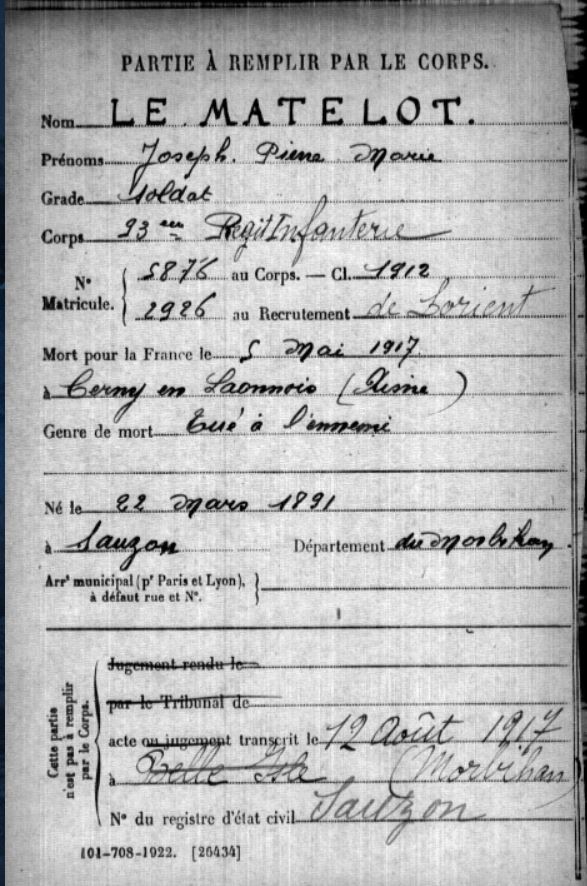 PARTIE À REMPLIR PAR LE CORPS.
Nom LE MATELOT.
Prénoms Joseph. Pierre Marie
Grade soldat
Corps 93 em Regit Infanterie
N° Matricule. 5876 au Corps. — Cl. 1912
2926 au Recrutement de Lorient
Mort pour la France le 5 Mai 1917
à Cerny en Laonnois (Aisne)
Genre de mort Tué à l'ennemi
Né le 22 Mars 1891
à Sauzon Département du Morbihan
Arrt municipal (pr Paris et Lyon),
à défaut rue et N°.
Cette partie n'est pas à remplir par le Corps.
Jugement rendu le
par le Tribunal de
acte ou jugement transcrit le 12 Août 1917
à Belle Isle (Morbihan)
N° du registre d'état civil Sauzon
101-708-1922. [26434]